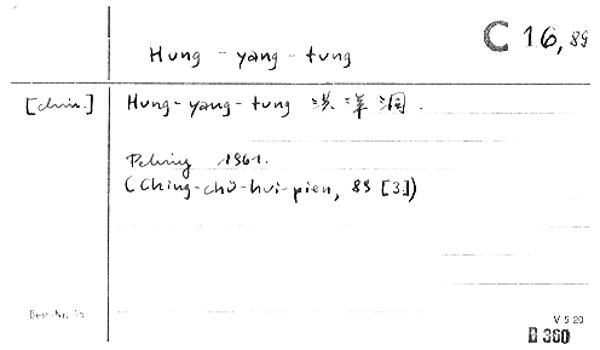 C 16, 89
Hung - yang - tung
[chin.] Hung - yang - tung 洪洋洞.
Peking 1961.
(Ching-chü-hui-pien, 89 [3])
Best.-Nr. 15
V 5 20
B 360